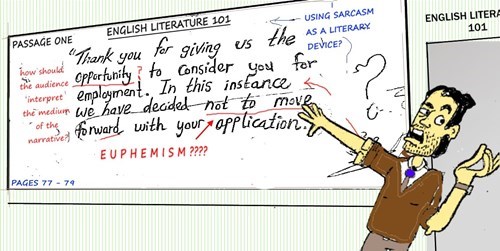 ENGLISH LITERATURE 101
PASSAGE ONE
"Thank you for giving us the
opportunity? to consider you for
employment. In this instance
we have decided not to move
forward with your application.
how should
the audience
'interpret'
the medium
'of the
narrative?
USING SARCASM
AS A LITERARY
DEVICE?
?
EUPHEMISM????
PAGES 77 - 79
ENGLISH LITERA
101